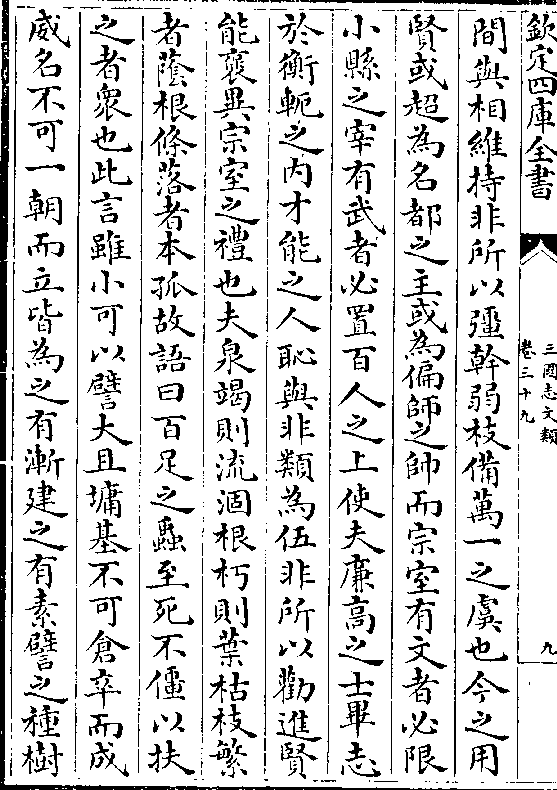 欽定四庫全書
三國志文類
卷三十九
九
間與相維持非所以彊幹弱枝備萬一之虞也今之用
賢或超為名都之主或為偏師之帥而宗室有文者必限
小縣之宰有武者必置百人之上使夫廉高之士畢志
於衡軛之內才能之人恥與非類為伍非所以勸進賢
能襃異宗室之禮也夫泉竭則流涸根朽則葉枯枝繁
者蔭根條落者本孤故語曰百足之蟲至死不僵以扶
之者衆也此言雖小可以譬大且墉基不可倉卒而成
威名不可一朝而立皆為之有漸建之有素譬之種樹